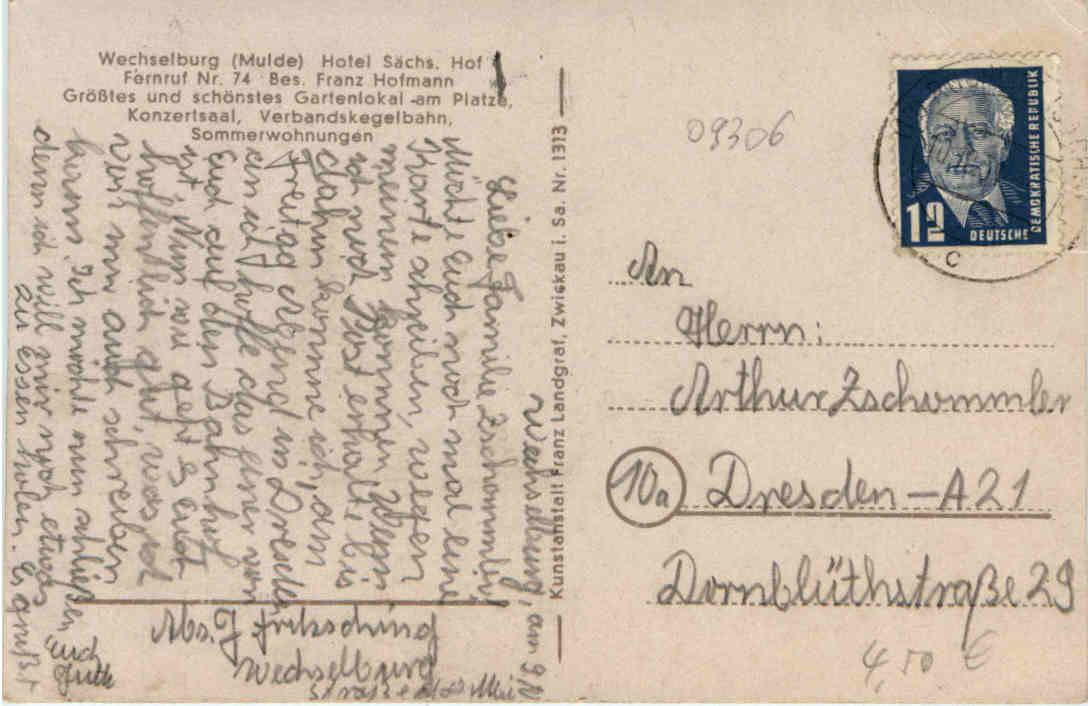 Wechselburg (Mulde) Hotel Sächs. Hof
Fernruf Nr. 74 Bes. Franz Hofmann
Größtes und schönstes Gartenlokal am Platze,
Konzertsaal, Verbandskegelbahn,
Sommerwohnungen
Wechselburg, am 9.
Liebe Familie Zschommler
Möchte Euch noch mal eine
Karte schreiben, wegen
meinem kommen. Wenn
ich noch Post erhalte, bis
dahin komme ich, am
Freitag Abend in Dresden
an ich hoffe das einer von
Euch auf den Bahnhof
ist. Nun wie geht es Euch
hoffentlich gut,
mir auch schreiben
kann. Ich möchte nun schließen
denn ich will mir noch etwas
zu Essen holen. Es grüßt
Euch
Abs. J. Fritzsching
Wechselburg
Straße des
Kunstanstalt Franz Landgraf, Zwickau i. Sa. Nr. 1313
09306
12
DEUTSCHE DEMOKRATISCHE REPUBLIK
c
An
Herrn:
Arthur Zschommler
10a Dresden - A21
Dornblüthstraße 29
4,50 €